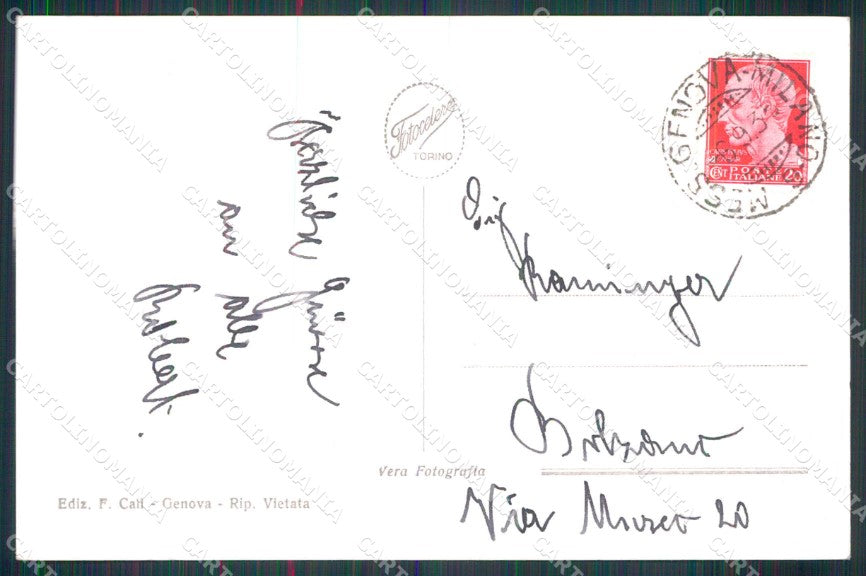 Herzliche Grüsse
an alle
Fotocelere
TORINO
GENOVA-MILANO
MESS
POSTE
ITALIANE
CENT 20
Sig
Kraminger
Bolzano
Via Museo 20
Vera Fotografia
Ediz. F. Cali - Genova - Rip. Vietata
CARTOLINOMANIA